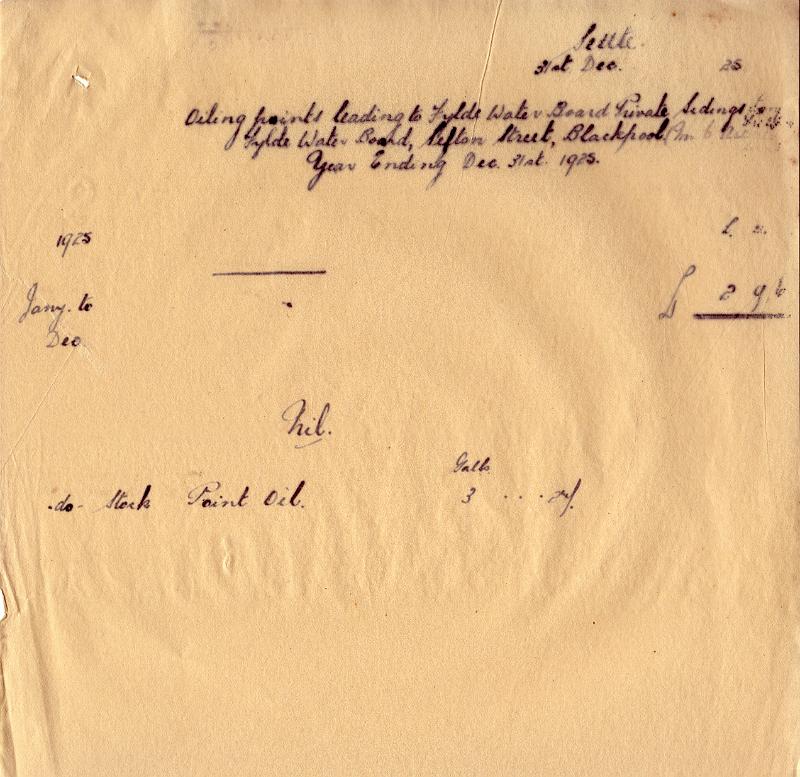 Settle.
31st Dec. 25
Oiling points leading to Fylde Water Board Private Sidings
Fylde Water Board, Sefton Street, Blackpool
Year Ending Dec. 31st. 1925.
1925
£ s.
Jany. to
£ 2 9
Dec.
Nil.
Galls
-do- Stock Point Oil. 3 . . .